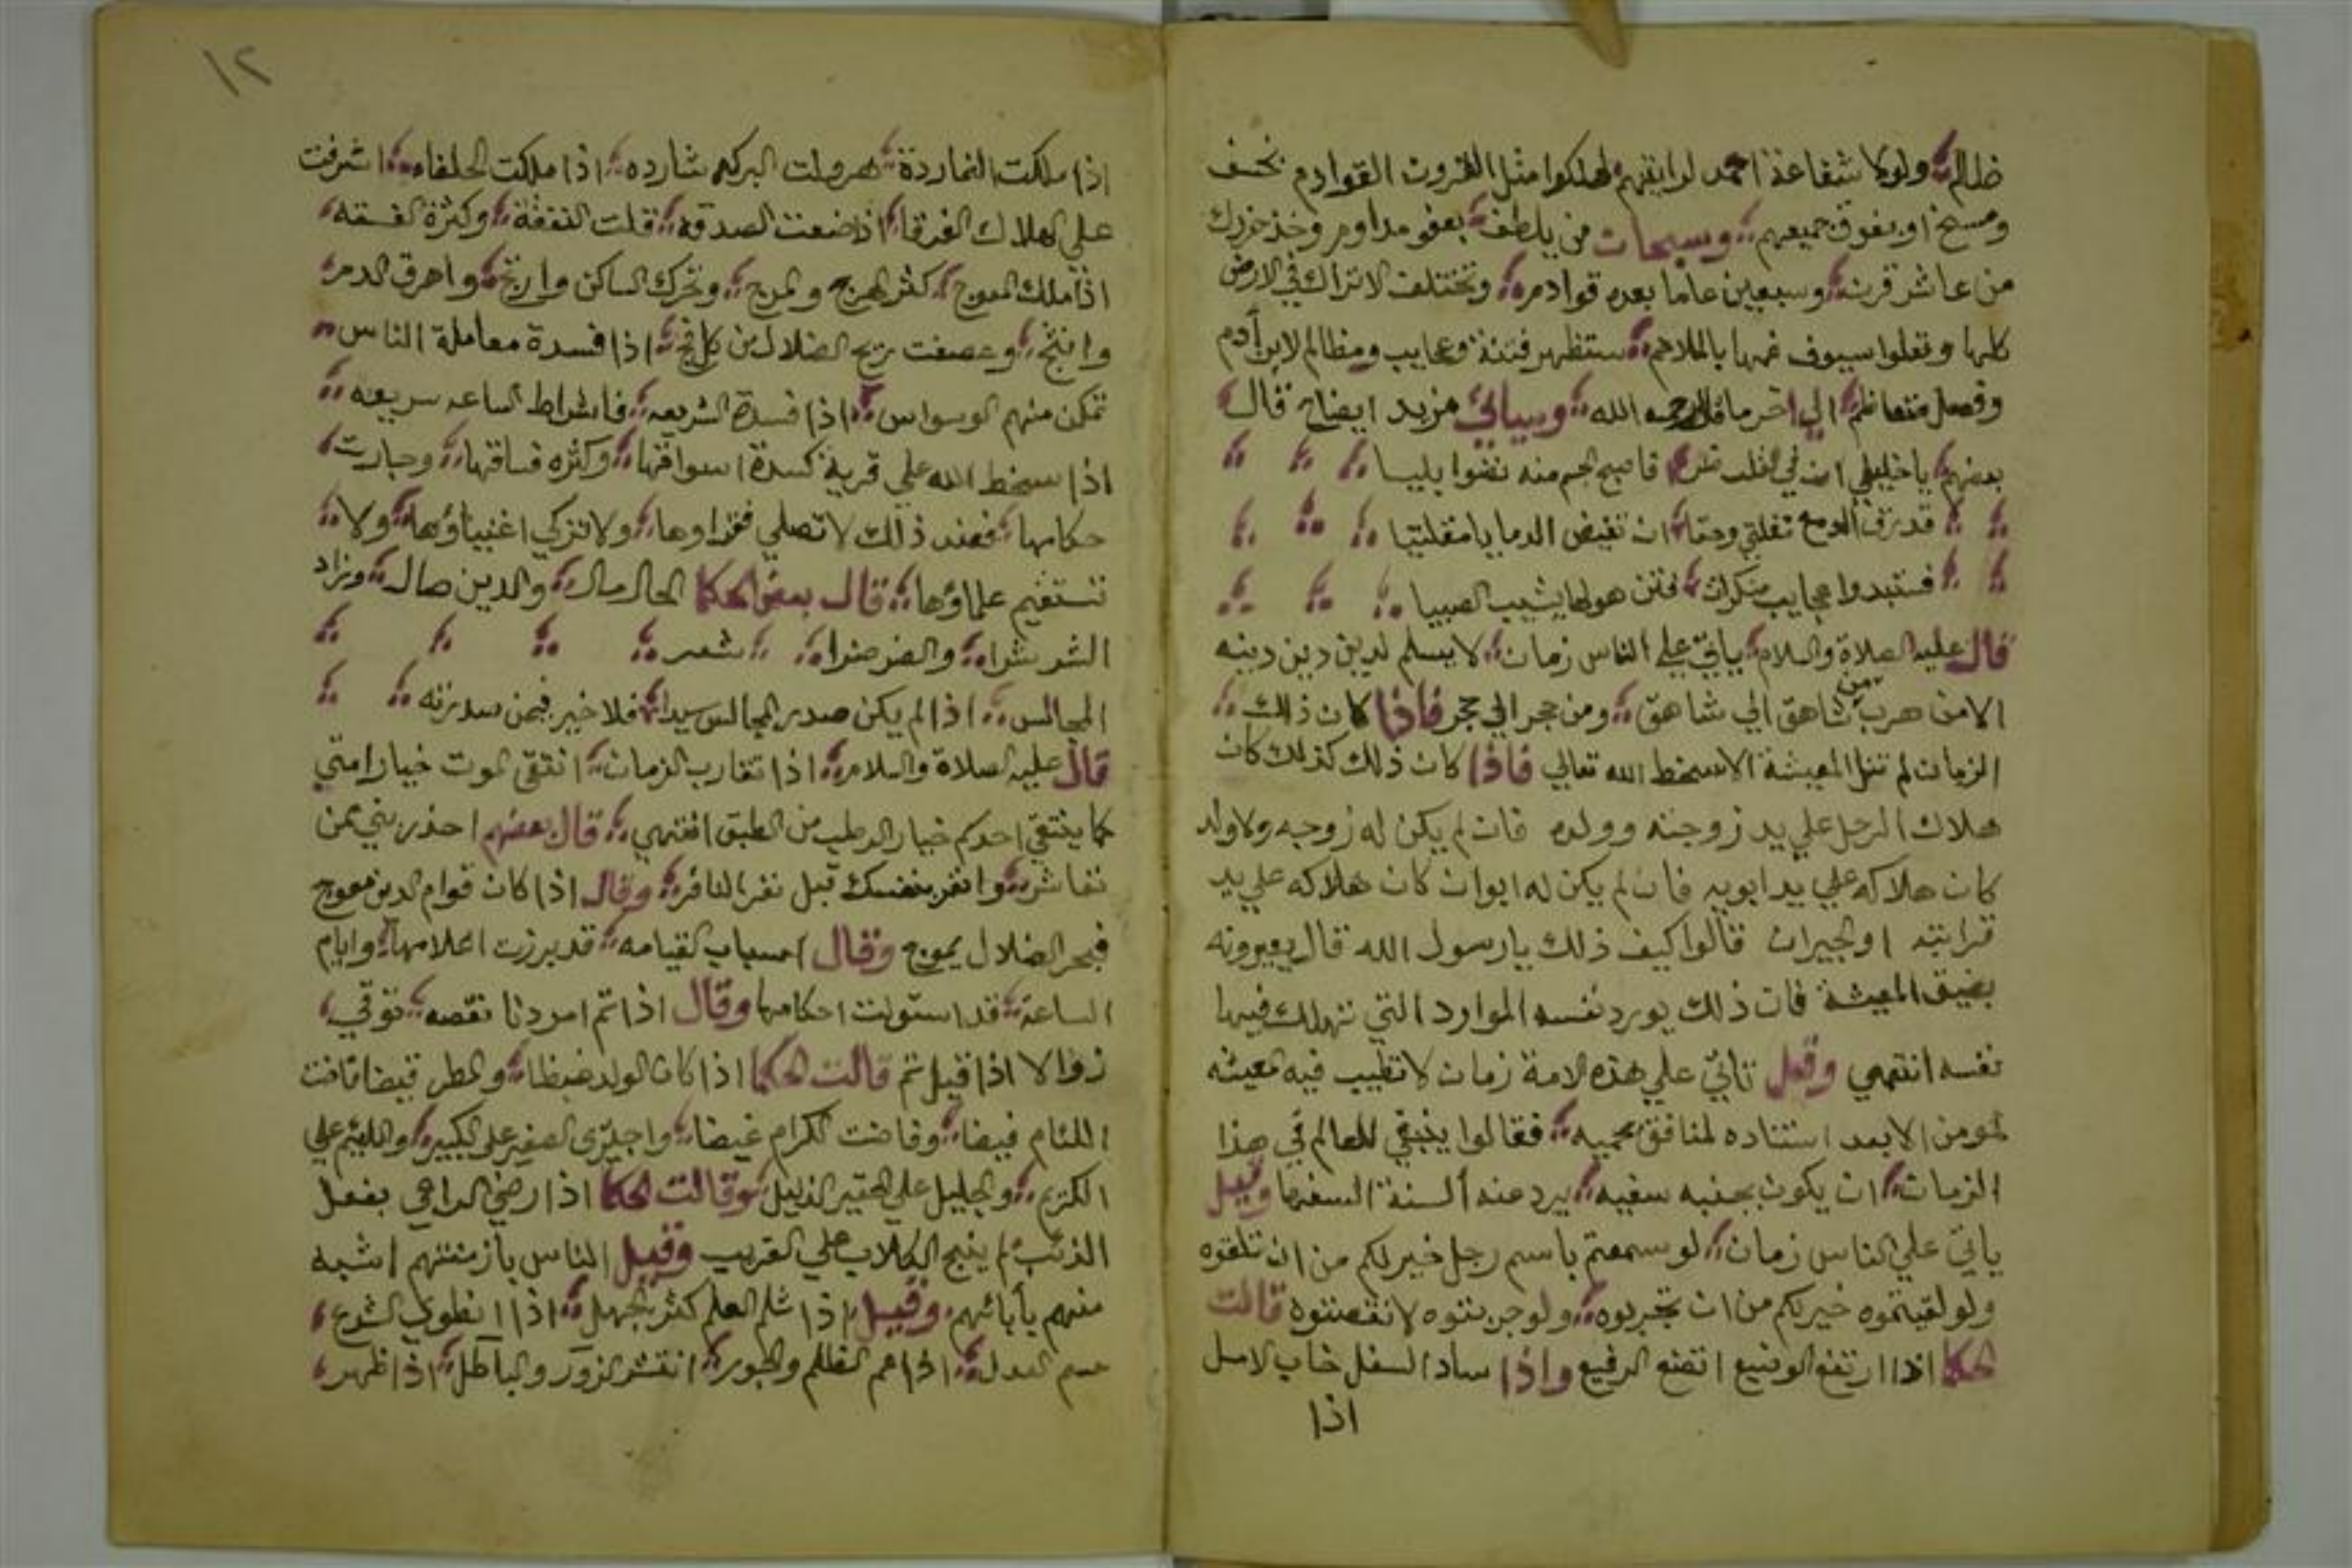 ظالم ولولا شفاعة احمد لرايتهم لهلكوا مثل القرون القوادم بخسف
ومسخ او بغرق جميعهم وسبحان من يلطف بعفو مداوم وخذ خردك
من عاشر قرن وسبعين عاما بعده قوادمه وتختلف الاتراك في الارض
كلها وتعلوا سيوف غمها بالملاحم ستظهر فتنة وعجايب ومظالم لابن آدم
الي اخر ما قال رحمه الله وسياتي مزيد ايضاح قال
بعضهم يا خليلي ان في القلب فاصبح الجسم منه نضوا بليا
قد نزف الدمع مقلتي وحقا ان تفيض الدما يا مقلتيا
فستبدوا عجايب منكرات فتن هولها يشيب الصبيا
قال عليه الصلاة والسلام ياتي علي الناس زمان لا يسلم لدين دينه
الا من هرب من شاهق الي شاهق ومن حجر الي حجر فاذا كان ذلك
الزمان لم تنل المعيشة الا بسخط الله تعالي فاذا كان ذلك كذلك كان
هلاك الرجل علي يد زوجته وولده فان لم يكن له زوجه ولا ولد
كان هلاكه علي يد ابويه فان لم يكن له ابوان كان هلاكه علي يد
قرابته او الجيران قالوا كيف ذلك يا رسول الله قال يعيرونه
بضيق المعيشة فان ذلك يورد نفسه الموارد التي تهلك فيها
نفسه انتهي وقيل تاتي علي هذه الامة زمان لا تطيب فيه معيشه
لمومن الا بعد استناده لمنافق بحميه فقالوا ينبغي للعالم في هذا
الزمان ان يكون بجنبه سفيه يرد عنه ألسنة السفها وقيل
ياتي علي الناس زمان لو سمعتم باسم رجل خير لكم من ان تلقوه
ولو لقيتموه خير لكم من ان تجربوه ولو جربتوه لانقصتوه قالت
الحكما اذا ارتفع الوضيع اتضع الرفيع واذا ساد السفل خاب الامل
اذا
١٢
اذا ملكت النماردة هرولت البركه شارده اذا ملكت الخلفاء اشرفت
علي الهلاك الفرقا اذا ضعفت الصدقه قلت النفقة وكثرة الفسقه
اذا ملك المعوج كثر الهرج والمرج وتحرك الساكن وارتج واهرق الدم
وانثج وعصفت ريح الضلال من كل فج اذا فسدة معاملة الناس
تمكن منهم الوسواس اذا فسدة الشريعه فاشراط الساعه سريعه
اذا سخط الله علي قرية كسدة اسواقها وكثره فساقها وجارت
حكامها فعند ذلك لا تصلي فقراوها ولا تزكي اغنياؤها ولا
تستقيم علماؤها قال بعض الحكما الحال مال والدين صال وزاد
الشر شرا والضر ضرا شعر
المجالس اذا لم يكن صدر المجالس سيدا فلا خير فيمن صدرته
قال عليه الصلاة والسلام اذا تقارب الزمان انتقي الموت خيار امتي
كما ينتقي احدكم خيار الرطب من الطبق انتهي قال بعضهم احذر بني ممن
تعاشر وانفر بنفسك قبل نفر النافر وقال اذا كان قوام الدين معوج
فبحر الضلال يموج وقال اسباب القيامه قد برزت اعلامها وايام
الساعة قد استولت احكامها وقال اذا تم امر دنا نقصه توقي
زوالا اذا قيل تم قالت الحكما اذا كان الولد غيظا والمطر قيضا فاضت
اللئام فيضا وغاضت الكرام غيضا واجتري الصغير علي الكبير واللئيم علي
الكريم والجليل علي الحقير الذليل وقالت الحكما اذا رضي الراعي بفعل
الذئب لم ينبح الكلاب علي الغريب وقيل الناس بازمنتهم اشبه
منهم بأبائهم وقيل اذا ثلم العلم كثر الجهل اذا انطوي الشرع
عدم العدل اذا عم الظلم والجور انتشر الزور والباطل اذا ظهر